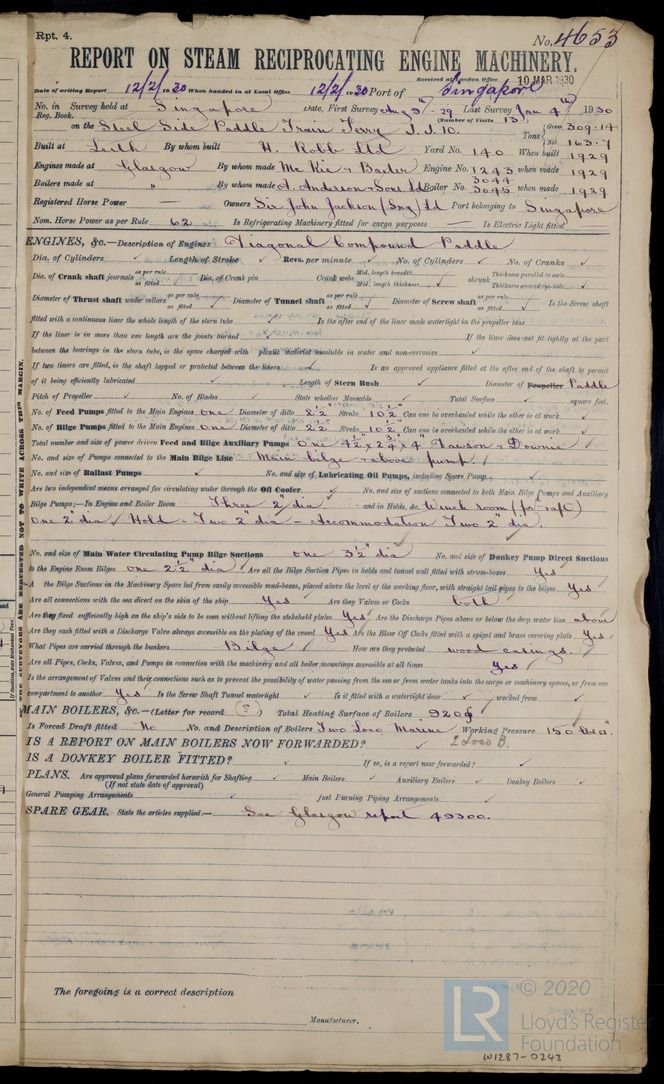 Rpt. 4.
No. 4653
REPORT ON STEAM RECIPROCATING ENGINE MACHINERY.
Received at London Office 10 MAR 1930
Date of writing Report 12/2/1930 When handed in at Local Office 12/2/1930 Port of Singapore
No. in Reg. Book. Survey held at Singapore Date, First Survey Aug 9th -29 Last Survey Jan 4th 1930
(Number of Visits 13)
on the Steel Side Paddle Train Ferry J.J. 10. Tons Gross 309.14 Net 163.7
Built at Leith By whom built H. Robb Ltd Yard No. 140 When built 1929
Engines made at Glasgow By whom made McKie & Baxter Engine No. 1243 when made 1929
Boilers made at " By whom made A. Anderson & Sons Ld Boiler No. 3044 3045 when made 1929
Registered Horse Power Owners Sir John Jackson (Sng) Ld Port belonging to Singapore
Nom. Horse Power as per Rule 62 Is Refrigerating Machinery fitted for cargo purposes Is Electric Light fitted
ENGINES, &c.—Description of Engines Diagonal Compound Paddle
Dia. of Cylinders Length of Stroke Revs. per minute No. of Cylinders No. of Cranks
Dia. of Crank shaft journals as per rule as fitted Dia. of Crank pin Crank webs Mid. length breadth Mid. length thickness shrunk Thickness parallel to axis Thickness around eye-hole
Diameter of Thrust shaft under collars as per rule as fitted Diameter of Tunnel shaft as per rule as fitted Diameter of Screw shaft as per rule as fitted Is the Screw shaft
fitted with a continuous liner the whole length of the stern tube Is the after end of the liner made watertight in the propeller boss
If the liner is in more than one length are the joints burned If the liner does not fit tightly at the part
between the bearings in the stern tube, is the space charged with plastic material insoluble in water and non-corrosive
If two liners are fitted, is the shaft lapped or protected between the liners Is an approved appliance fitted at the after end of the shaft to permit
of it being efficiently lubricated Length of Stern Bush Diameter of Propeller Paddle
Pitch of Propeller No. of Blades State whether Moveable Total Surface square feet.
No. of Feed Pumps fitted to the Main Engines one Diameter of ditto 2½" Stroke 10½" Can one be overhauled while the other is at work
No. of Bilge Pumps fitted to the Main Engines one Diameter of ditto 2½" Stroke 10½" Can one be overhauled while the other is at work
Total number and size of power driven Feed and Bilge Auxiliary Pumps One 4½" x 2¾" x 4" Dawson & Downie
No. and size of Pumps connected to the Main Bilge Line Main bilge & above pump.
No. and size of Ballast Pumps No. and size of Lubricating Oil Pumps, including Spare Pump
Are two independent means arranged for circulating water through the Oil Cooler No. and size of suctions connected to both Main Bilge Pumps and Auxiliary
Bilge Pumps;—In Engine and Boiler Room Three 2" dia. and in Holds, &c. Winch room (for'd & aft)
One 2" dia / Hold - Two 2" dia - Accommodation Two 2" dia.
No. and size of Main Water Circulating Pump Bilge Suctions one 3½" dia No. and size of Donkey Pump Direct Suctions
to the Engine Room Bilges one 2½" dia Are all the Bilge Suction Pipes in holds and tunnel well fitted with strum-boxes Yes
A the Bilge Suctions in the Machinery Space led from easily accessible mud-boxes, placed above the level of the working floor, with straight tail pipes to the bilges Yes
Are all connections with the sea direct on the skin of the ship Yes Are they Valves or Cocks both
Are they fixed sufficiently high on the ship's side to be seen without lifting the stokehold plates Yes Are the Discharge Pipes above or below the deep water line above
Are they each fitted with a Discharge Valve always accessible on the plating of the vessel Yes Are the Blow Off Cocks fitted with a spigot and brass covering plate Yes.
What Pipes are carried through the bunkers Bilge How are they protected wood casings.
Are all Pipes, Cocks, Valves, and Pumps in connection with the machinery and all boiler mountings accessible at all times Yes
Is the arrangement of Valves and their connections such as to prevent the possibility of water passing from the sea or from water tanks into the cargo or machinery spaces, or from one
compartment to another Yes Is the Screw Shaft Tunnel watertight Is it fitted with a watertight door worked from
MAIN BOILERS, &c.—(Letter for record (S)) Total Heating Surface of Boilers 920
Is Forced Draft fitted No No. and Description of Boilers Two Loco Marine Working Pressure 150 lbs
IS A REPORT ON MAIN BOILERS NOW FORWARDED? 2 Loco B.
IS A DONKEY BOILER FITTED? If so, is a report now forwarded?
PLANS. Are approved plans forwarded herewith for Shafting Main Boilers Auxiliary Boilers Donkey Boilers
(If not state date of approval)
General Pumping Arrangements Fuel Burning Piping Arrangements
SPARE GEAR. State the articles supplied:— See Glasgow report 49300.
The foregoing is a correct description
Manufacturer.
THE SURVEYORS ARE REQUESTED NOT TO WRITE ACROSS THIS MARGIN.
LR © 2020
Lloyd's Register
Foundation
W1287-0243